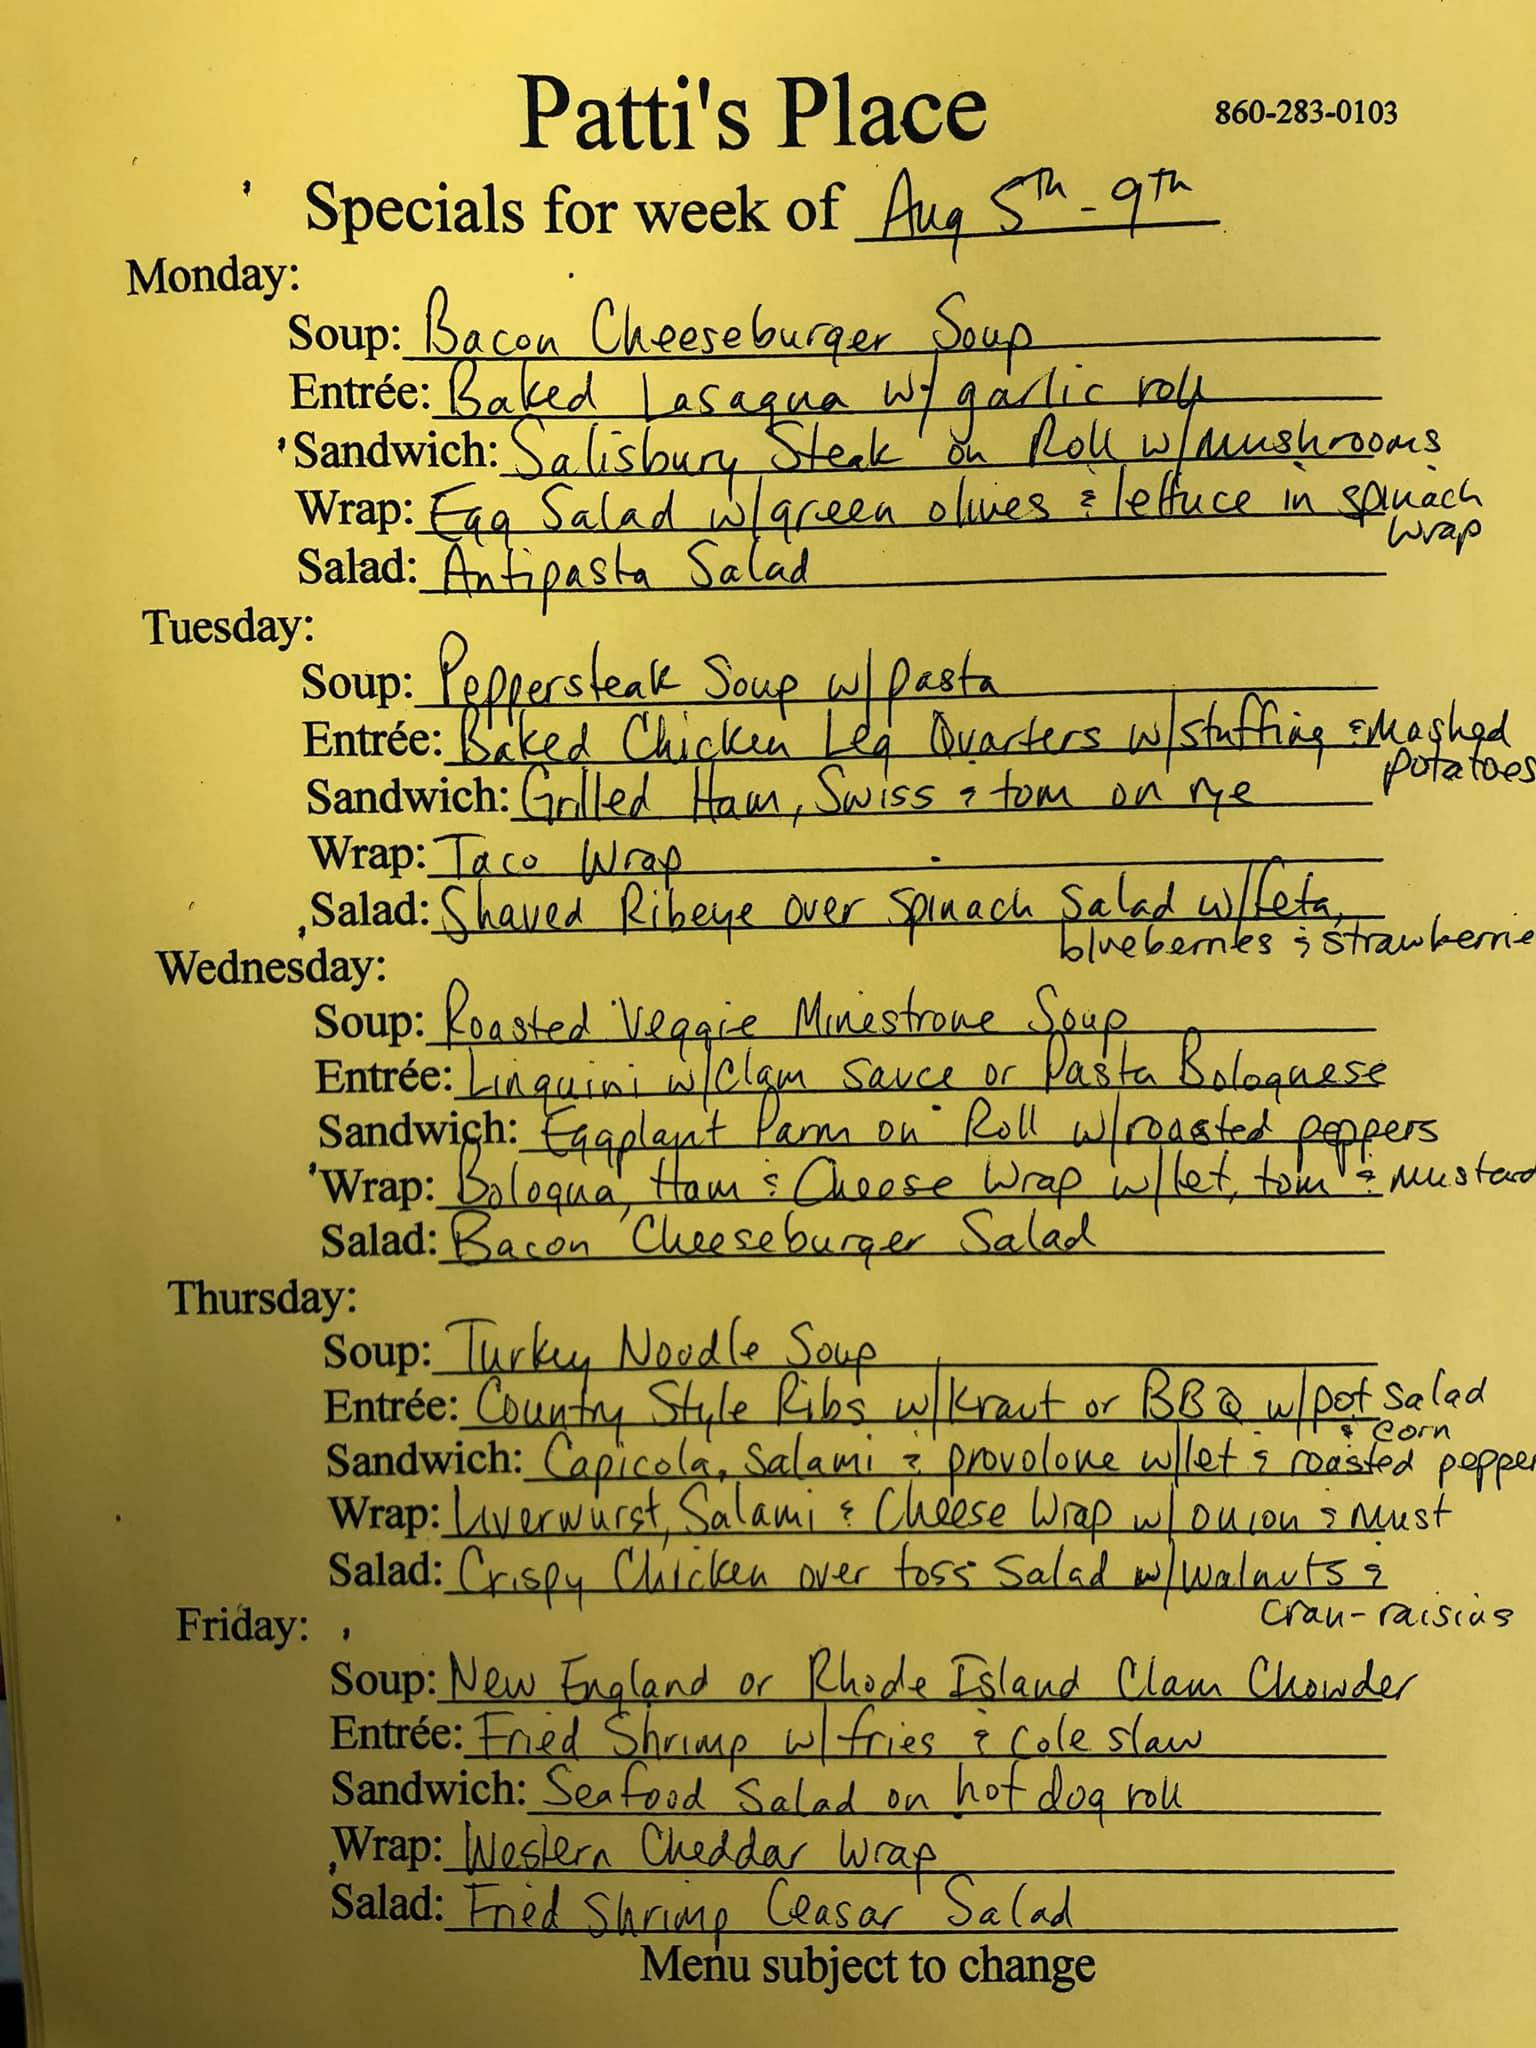 Patti's Place
860-283-0103
Specials for week of Aug 5th - 9th
Monday:
Soup: Bacon Cheeseburger Soup
Entrée: Baked Lasagna w/ garlic roll
Sandwich: Salisbury Steak on Roll w/mushrooms
Wrap: Egg Salad w/green olives & lettuce in spinach
wrap
Salad: Antipasta Salad
Tuesday:
Soup: Peppersteak Soup w/pasta
Entrée: Baked Chicken Leg Quarters w/stuffing & mashed
potatoes
Sandwich: Grilled Ham, Swiss & tom on rye
Wrap: Taco Wrap
Salad: Shaved Ribeye over spinach salad w/feta,
blueberries & strawberrie
Wednesday:
Soup: Roasted Veggie Minestrone Soup
Entrée: Linguini w/clam sauce or Pasta Bolognese
Sandwich: Eggplant Parm on Roll w/roasted peppers
Wrap: Bologna, Ham & Cheese Wrap w/let, tom & mustard
Salad: Bacon Cheeseburger Salad
Thursday:
Soup: Turkey Noodle Soup
Entrée: Country Style Ribs w/kraut or BBQ w/pot salad
& corn
Sandwich: Capicola, Salami & provolone w/let & roasted pepper
Wrap: Liverwurst, Salami & Cheese Wrap w/ onion & must
Salad: Crispy Chicken over toss salad w/walnuts &
cran-raisins
Friday:
Soup: New England or Rhode Island Clam Chowder
Entrée: Fried Shrimp w/fries & cole slaw
Sandwich: Seafood Salad on hot dog roll
Wrap: Western Cheddar Wrap
Salad: Fried Shrimp Ceasar Salad
Menu subject to change